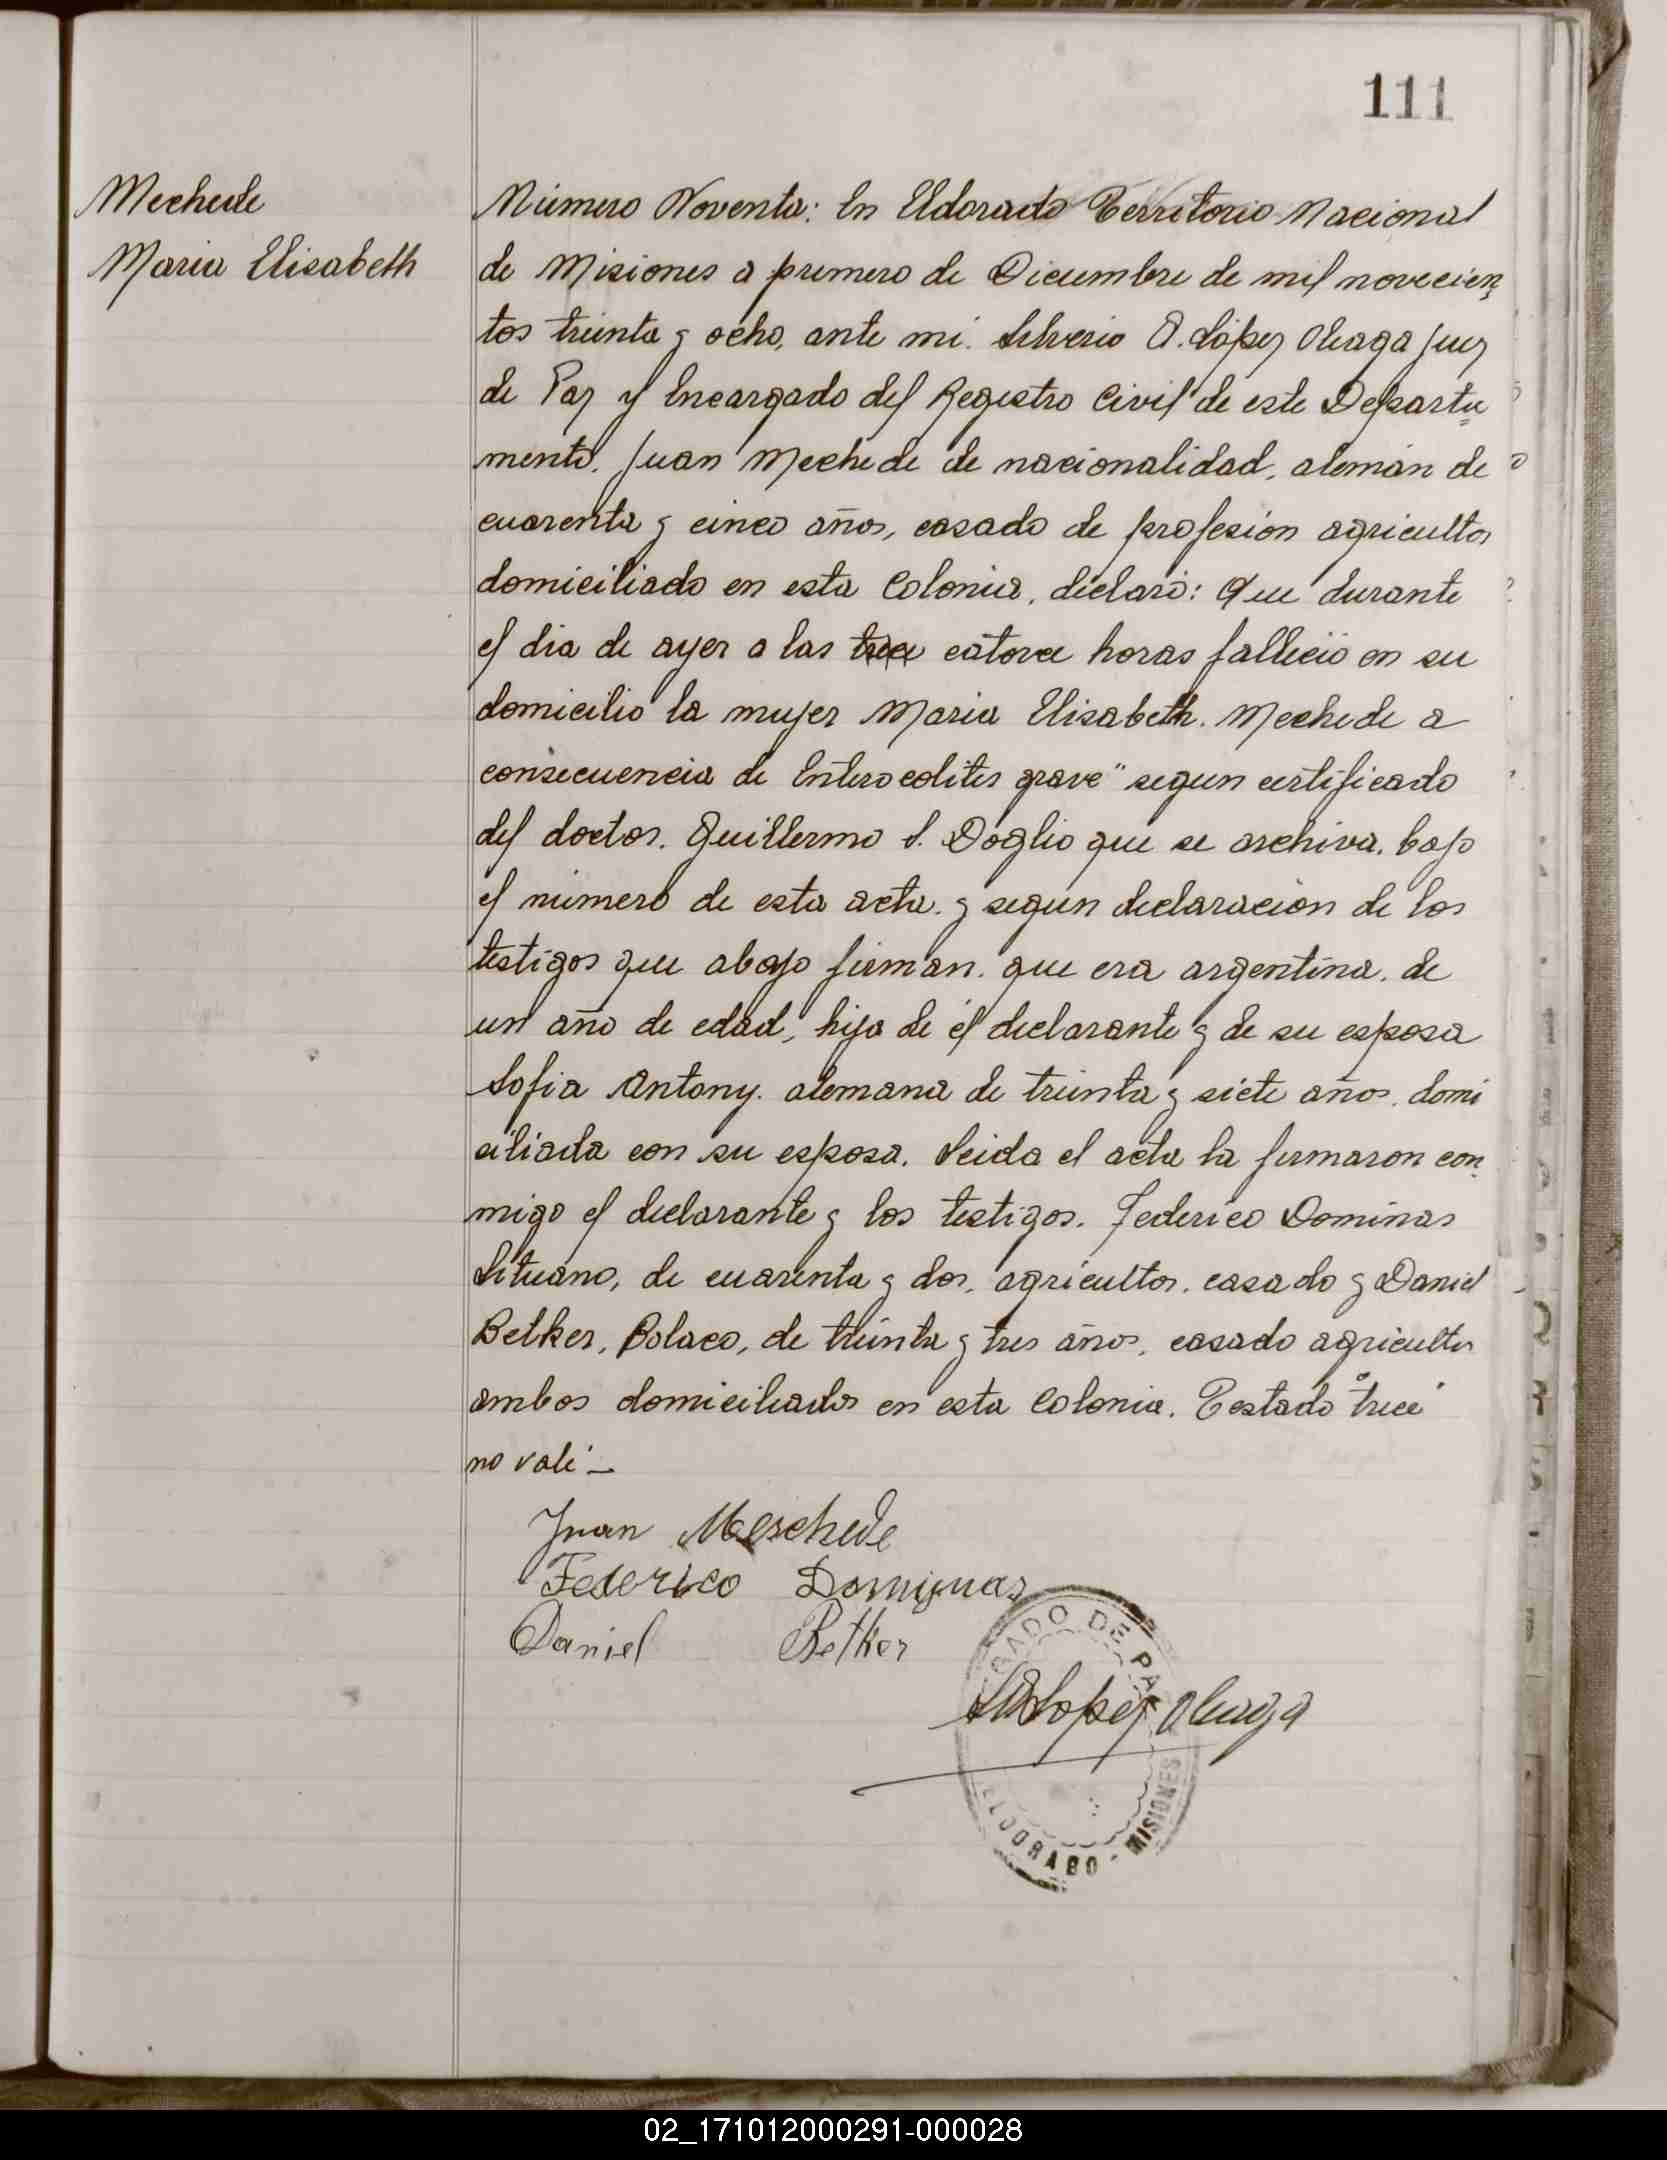 111
Mechede
Maria Elisabeth
Número Noventa: En Eldorado Territorio Nacional
de Misiones a primero de Diciembre de mil novecien
tos treinta y ocho, ante mi. Silverio A. López Oleaga Juez
de Paz y Encargado del Registro Civil de este Departa
mento. Juan Mechede de nacionalidad, alemán de
cuarenta y cinco años, casado de profesión agricultor
domiciliado en esta Colonia, declaró: Que durante
el dia de ayer a las trece catorce horas falleció en su
domicilio la mujer Maria Elisabeth. Mechede a
consecuencia de Enterocolites grave" segun certificado
del doctor. Guillermo S. Doglio que se archiva. bajo
el número de esta acta. y segun declaracion de los
testigos que abajo firman. que era argentina. de
un año de edad, hija de el declarante y de su esposa
Sofia Antony. alemana de treinta y siete años. domi
ciliada con su esposa. Leida el acta la firmaron con
migo el declarante y los testigos. Federico Dominas
Lituano, de cuarenta y dos, agricultor. casado y Daniel
Betker, Polaco, de treinta y tres años, casado agricultor
ambos domiciliados en esta Colonia. Testado "trece"
no vale —
Juan Meschede
Federico Dominas
Daniel Betker
GADO DE PAZ
SALopez Oleaga
ELDORADO - MISIONES
02_171012000291-000028